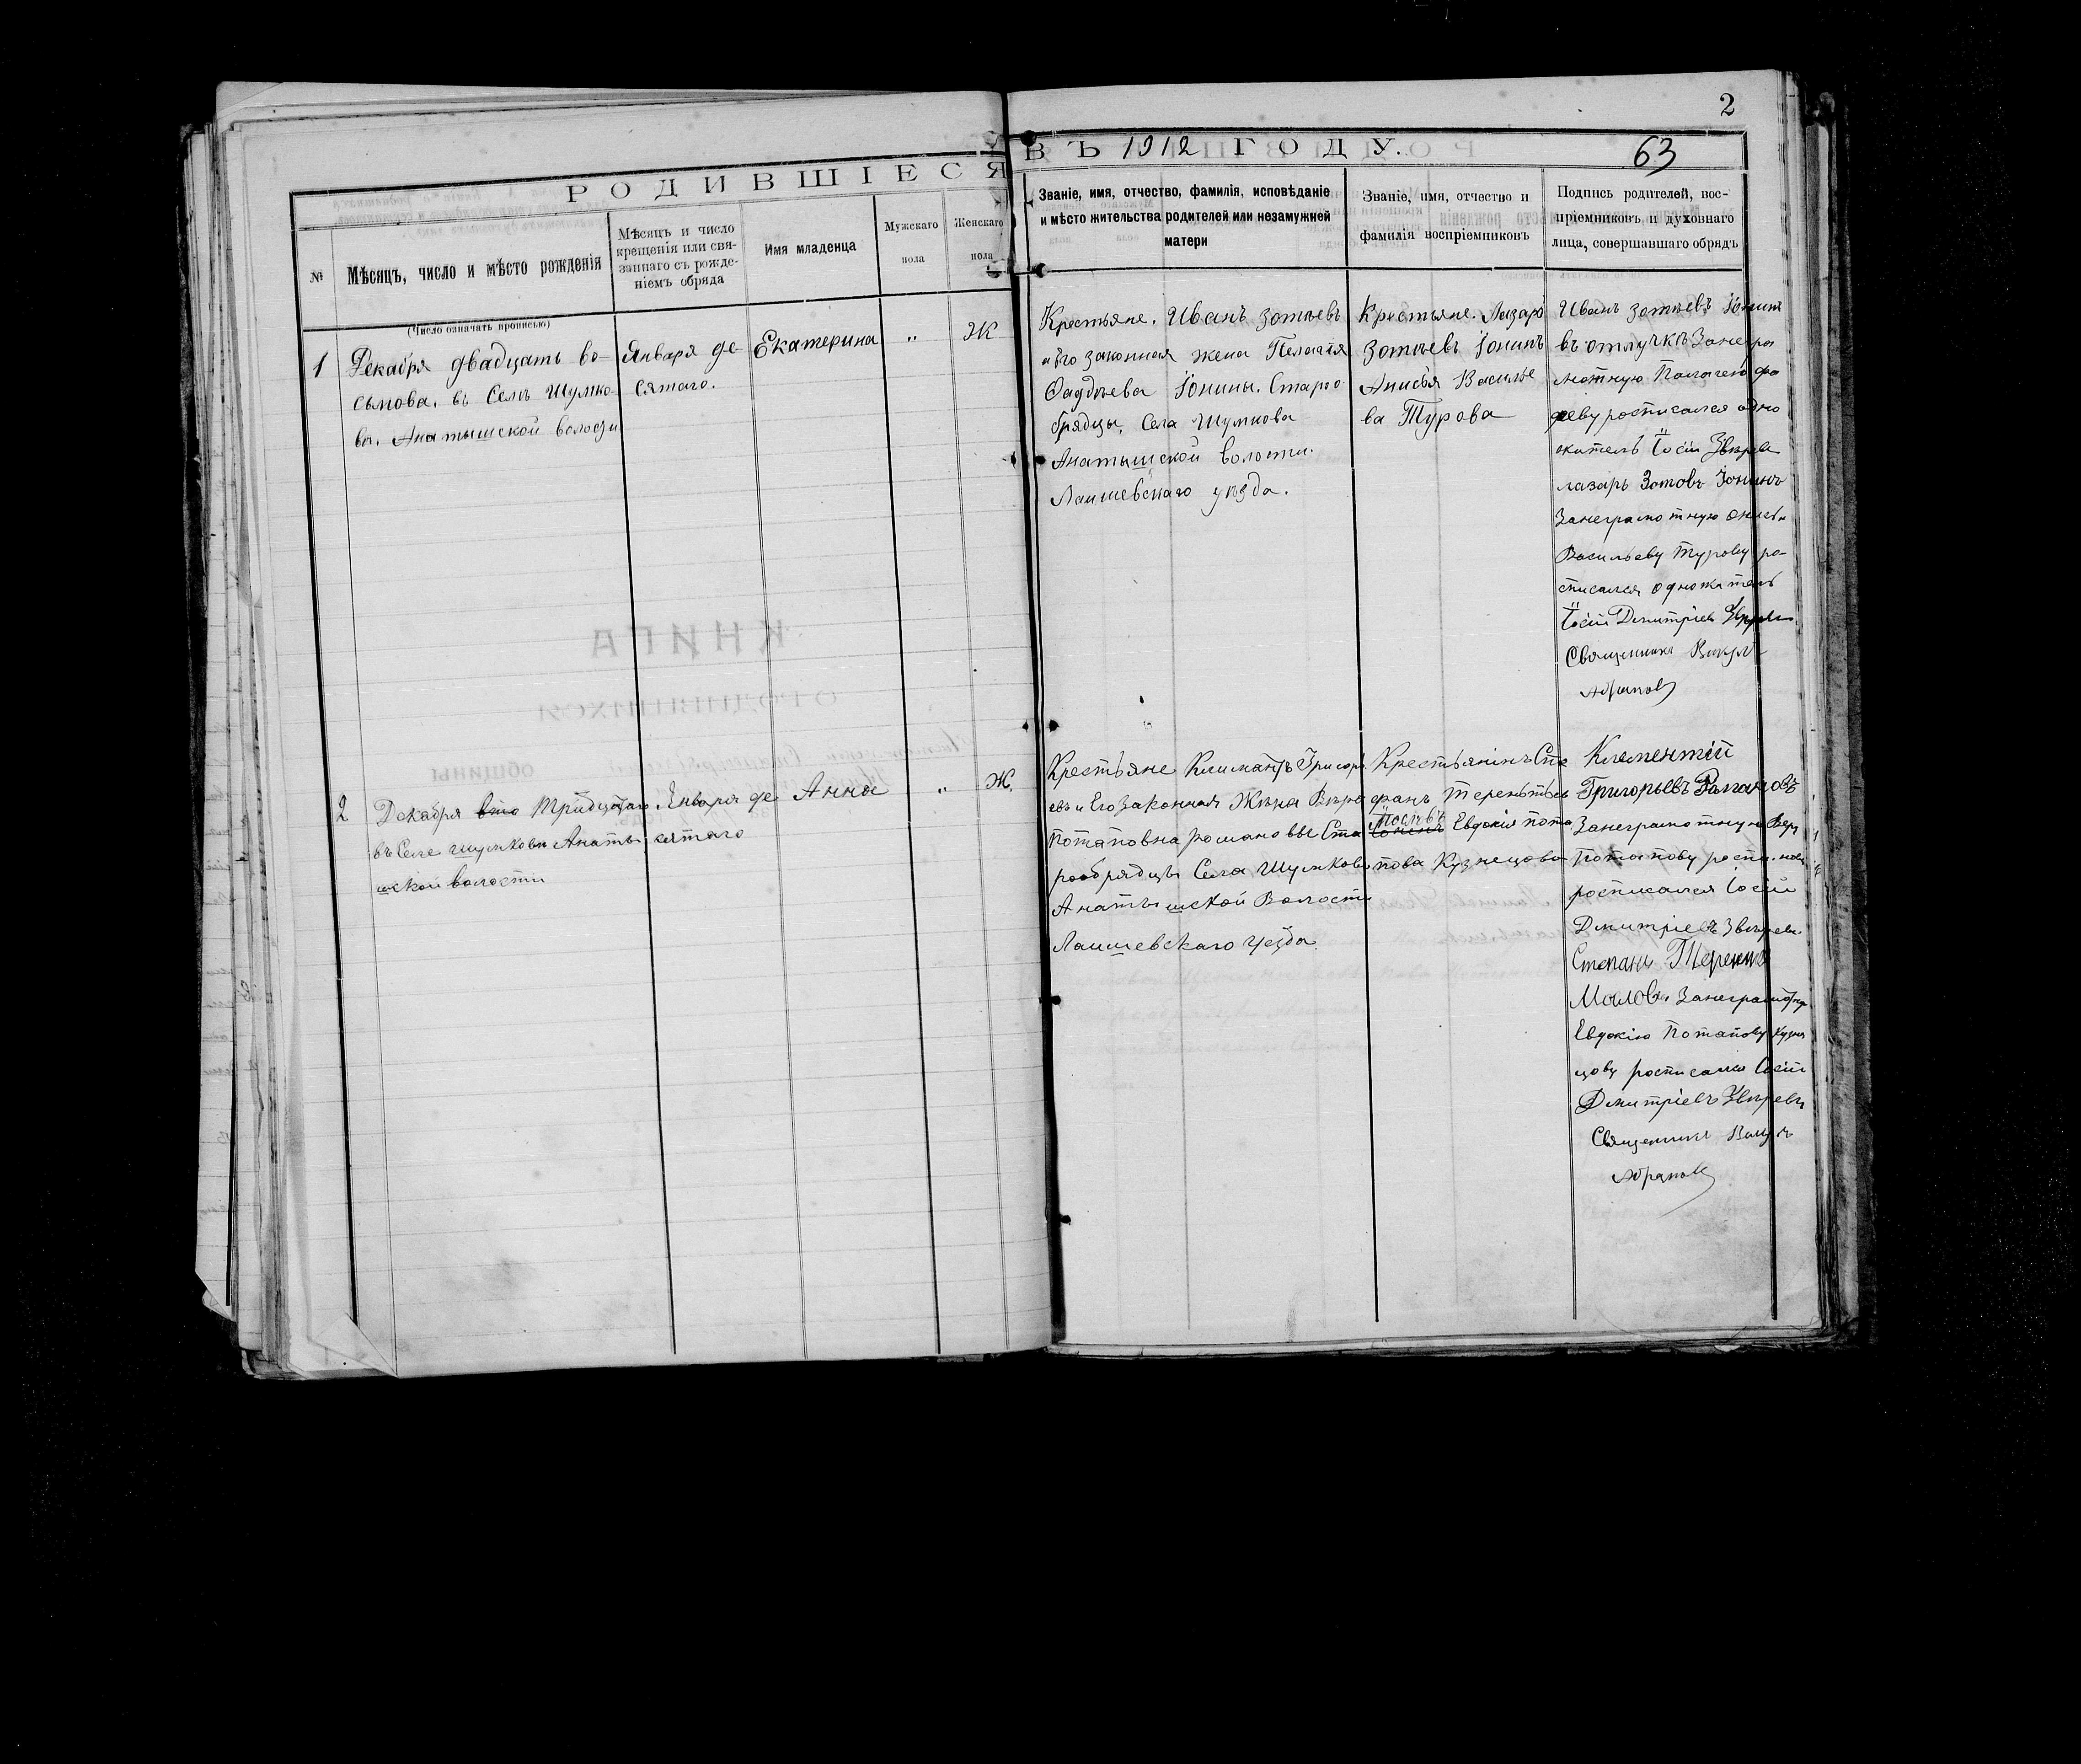 2
РОДИВШІЕСЯ
ВЪ 1912 ГОДУ.
63
№
Мѣсяцъ, число и мѣсто рожденія
(Число означать прописью)
Мѣсяцъ и число
крещенія или свя-
заннаго съ рожде-
ніемъ обряда
Имя младенца
Мужскаго
пола
Женскаго
пола
Званіе, имя, отчество, фамилія, исповѣданіе
и мѣсто жительства родителей или незамужней
матери
Званіе, имя, отчество и
фамилія воспріемниковъ
Подпись родителей, вос-
пріемниковъ и духовнаго
лица, совершавшаго обрядъ
1
Декабря двадцать во-
сьмова. въ Селѣ Шумко
ве. Анатышской волости
Января де
сятаго.
Екатерина
„
Ж
Крестьяне. Иванъ Зотѣевъ
и его законная жена Пелагія
Фаддѣева Іонины. Старо
обрядцы, Села Шумкова
Анатышской волости.
Лаишевскаго уѣзда.
Крестьяне. Лазарь
Зотѣевъ Іонинъ
Анисья Василье
ва Турова
Иванъ Зотѣевъ Іонинъ
въ отлучкѣ Занегра
мотную Палагею Фа
дееву росписался одно
житель Іосіи Звѣрев
лазарь Зотовъ Іонинъ
Занеграмотную
Васильеву Турову ро-
списался одножитель
Іосіи Дмитріев
Священникъ
Абрамов
2
Декабря Тридцатаго.
въ Селе Шумкови Анаты
шской волости
Енваря де
сятаго
Анна
„
Ж.
Крестьяне Климантъ Григорь
евъ и Его Законная Жѣна Вѣра
Потаповна романовы Ста
рообрядцы Села Шумкови
Анатышской Волости
Лаишевскаго уезда.
Крестьянинъ Сте
фанъ Терентьев
Евдокія Пота
пова Кузнецова
Клементій
Григорьевъ Рамановъ
Занеграмотную Веру
Потапову
росписался Іосіи
Дмитріевъ Звѣревъ
Степанъ
Занеграмотную
Евдокію Потапову Кузне
цову росписался Іосіи
Дмитріевъ Звѣревъ
Священникъ
Абрамов